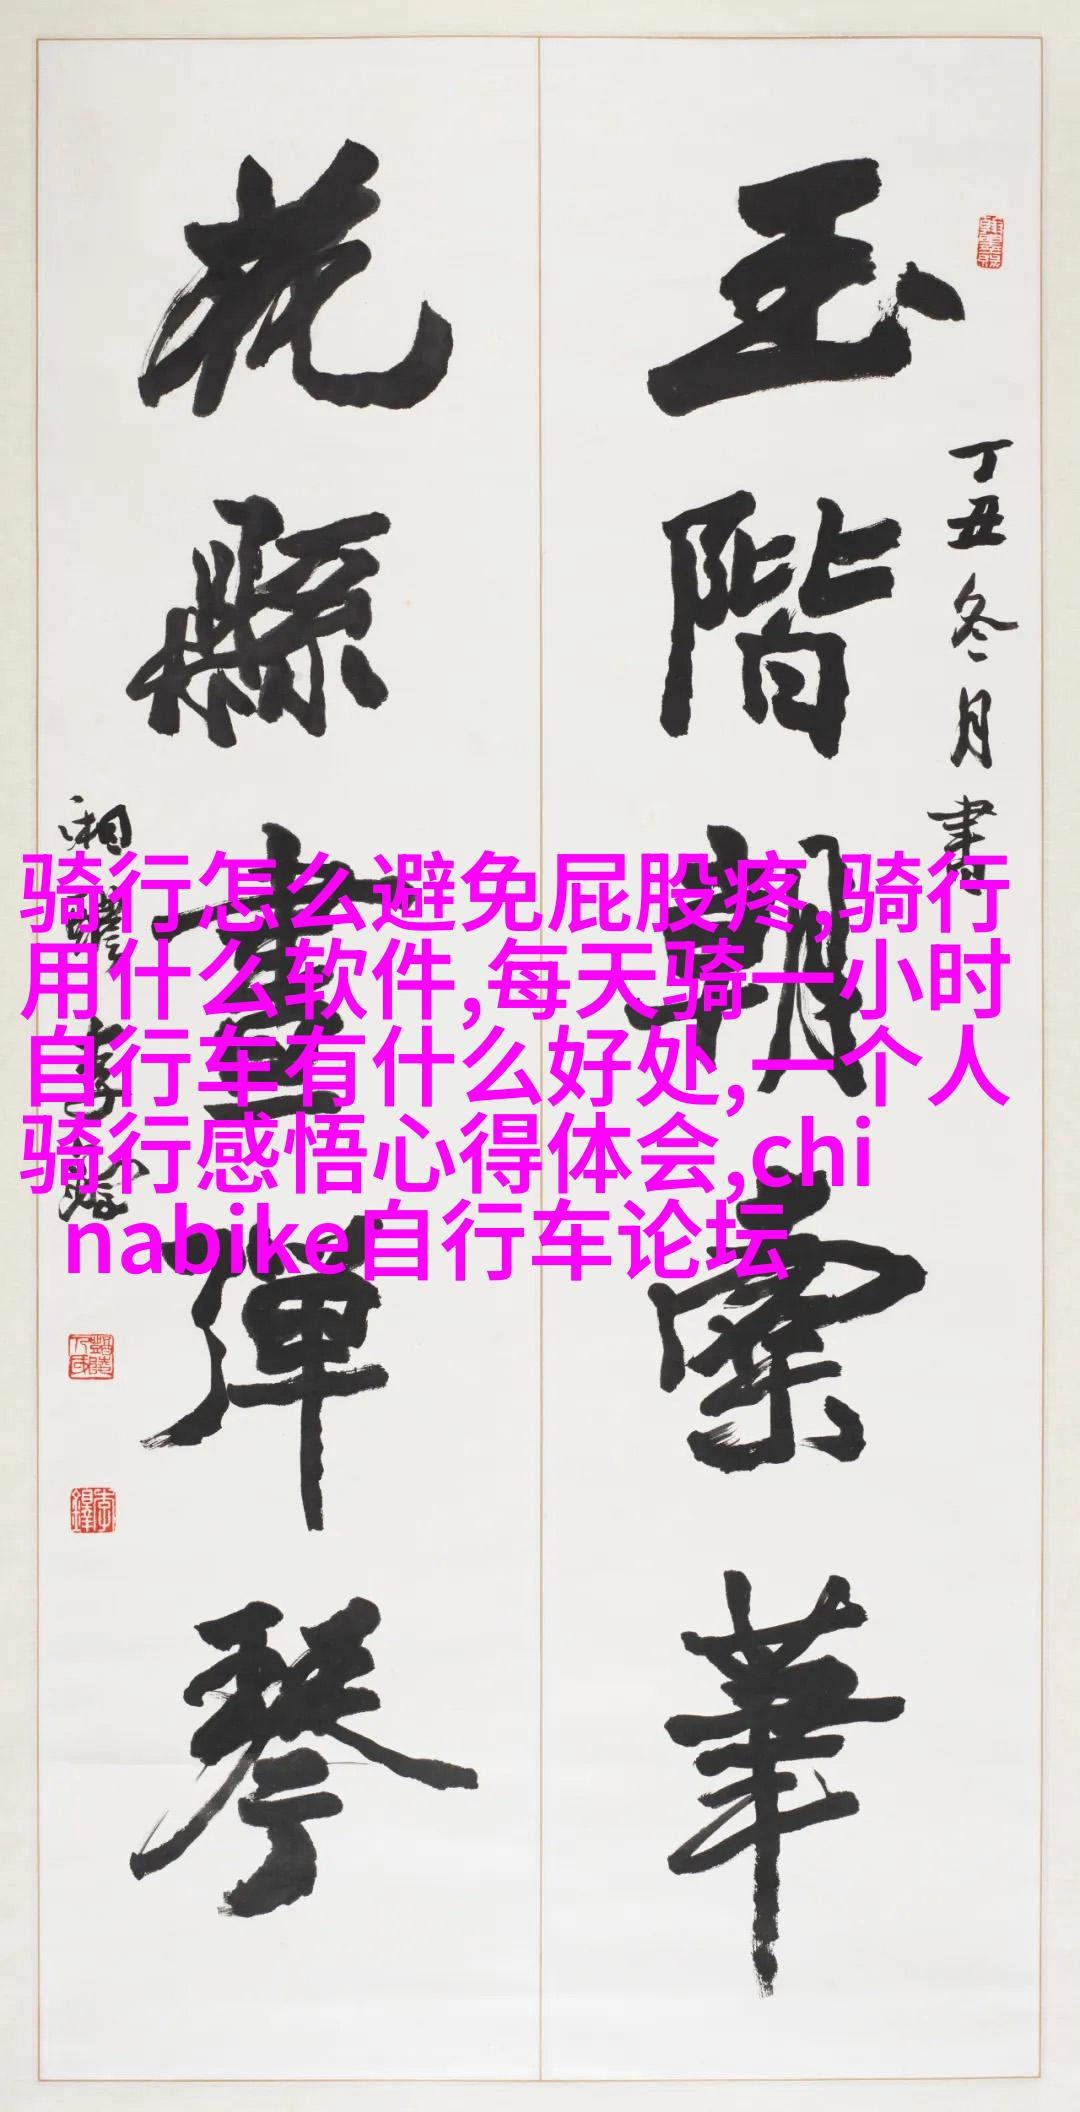 玉階朝索
丁丑冬月書
花縣晝彈琴
湘醴李鐸
骑行怎么避免屁股疼,骑行
用什么软件,每天骑一小时
自行车有什么好处,一个人
骑行感悟心得体会,chi
nabike自行车论坛